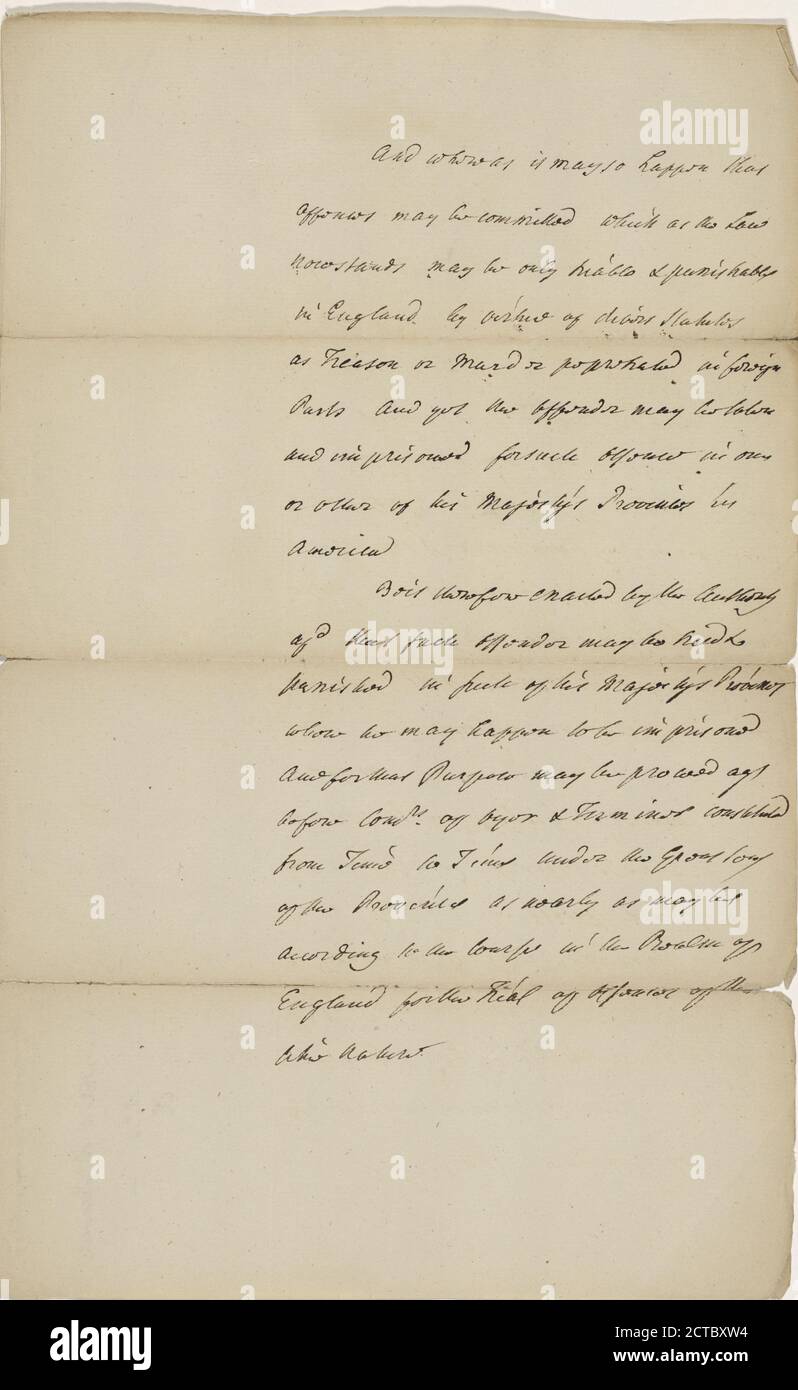 And whereas it may so happen that
offences may be committed which as the Law
now stands may be only triable & punishable
in England by virtue of divers Statutes
as Treason or Murder perpetrated in foreign
Parts And yet the Offender may be taken
and imprisoned for such Offence in one
or other of his Majesty's Provinces in
America
Be it therefore enacted by the Authority
afd that such Offender may be tried &
punished in such of his Majesty's Provinces
where he may happen to be imprisoned
And for that Purpose may be proceed agt
before Comrs of Oyer & Terminer constituted
from Time to Time under the Great Seal
of the Province as nearly as may be
according to the Course in the Realm of
England for the Trial of Offences of the
like Nature.
alamy
alamy
Image ID: 2CTBXW4
www.alamy.com